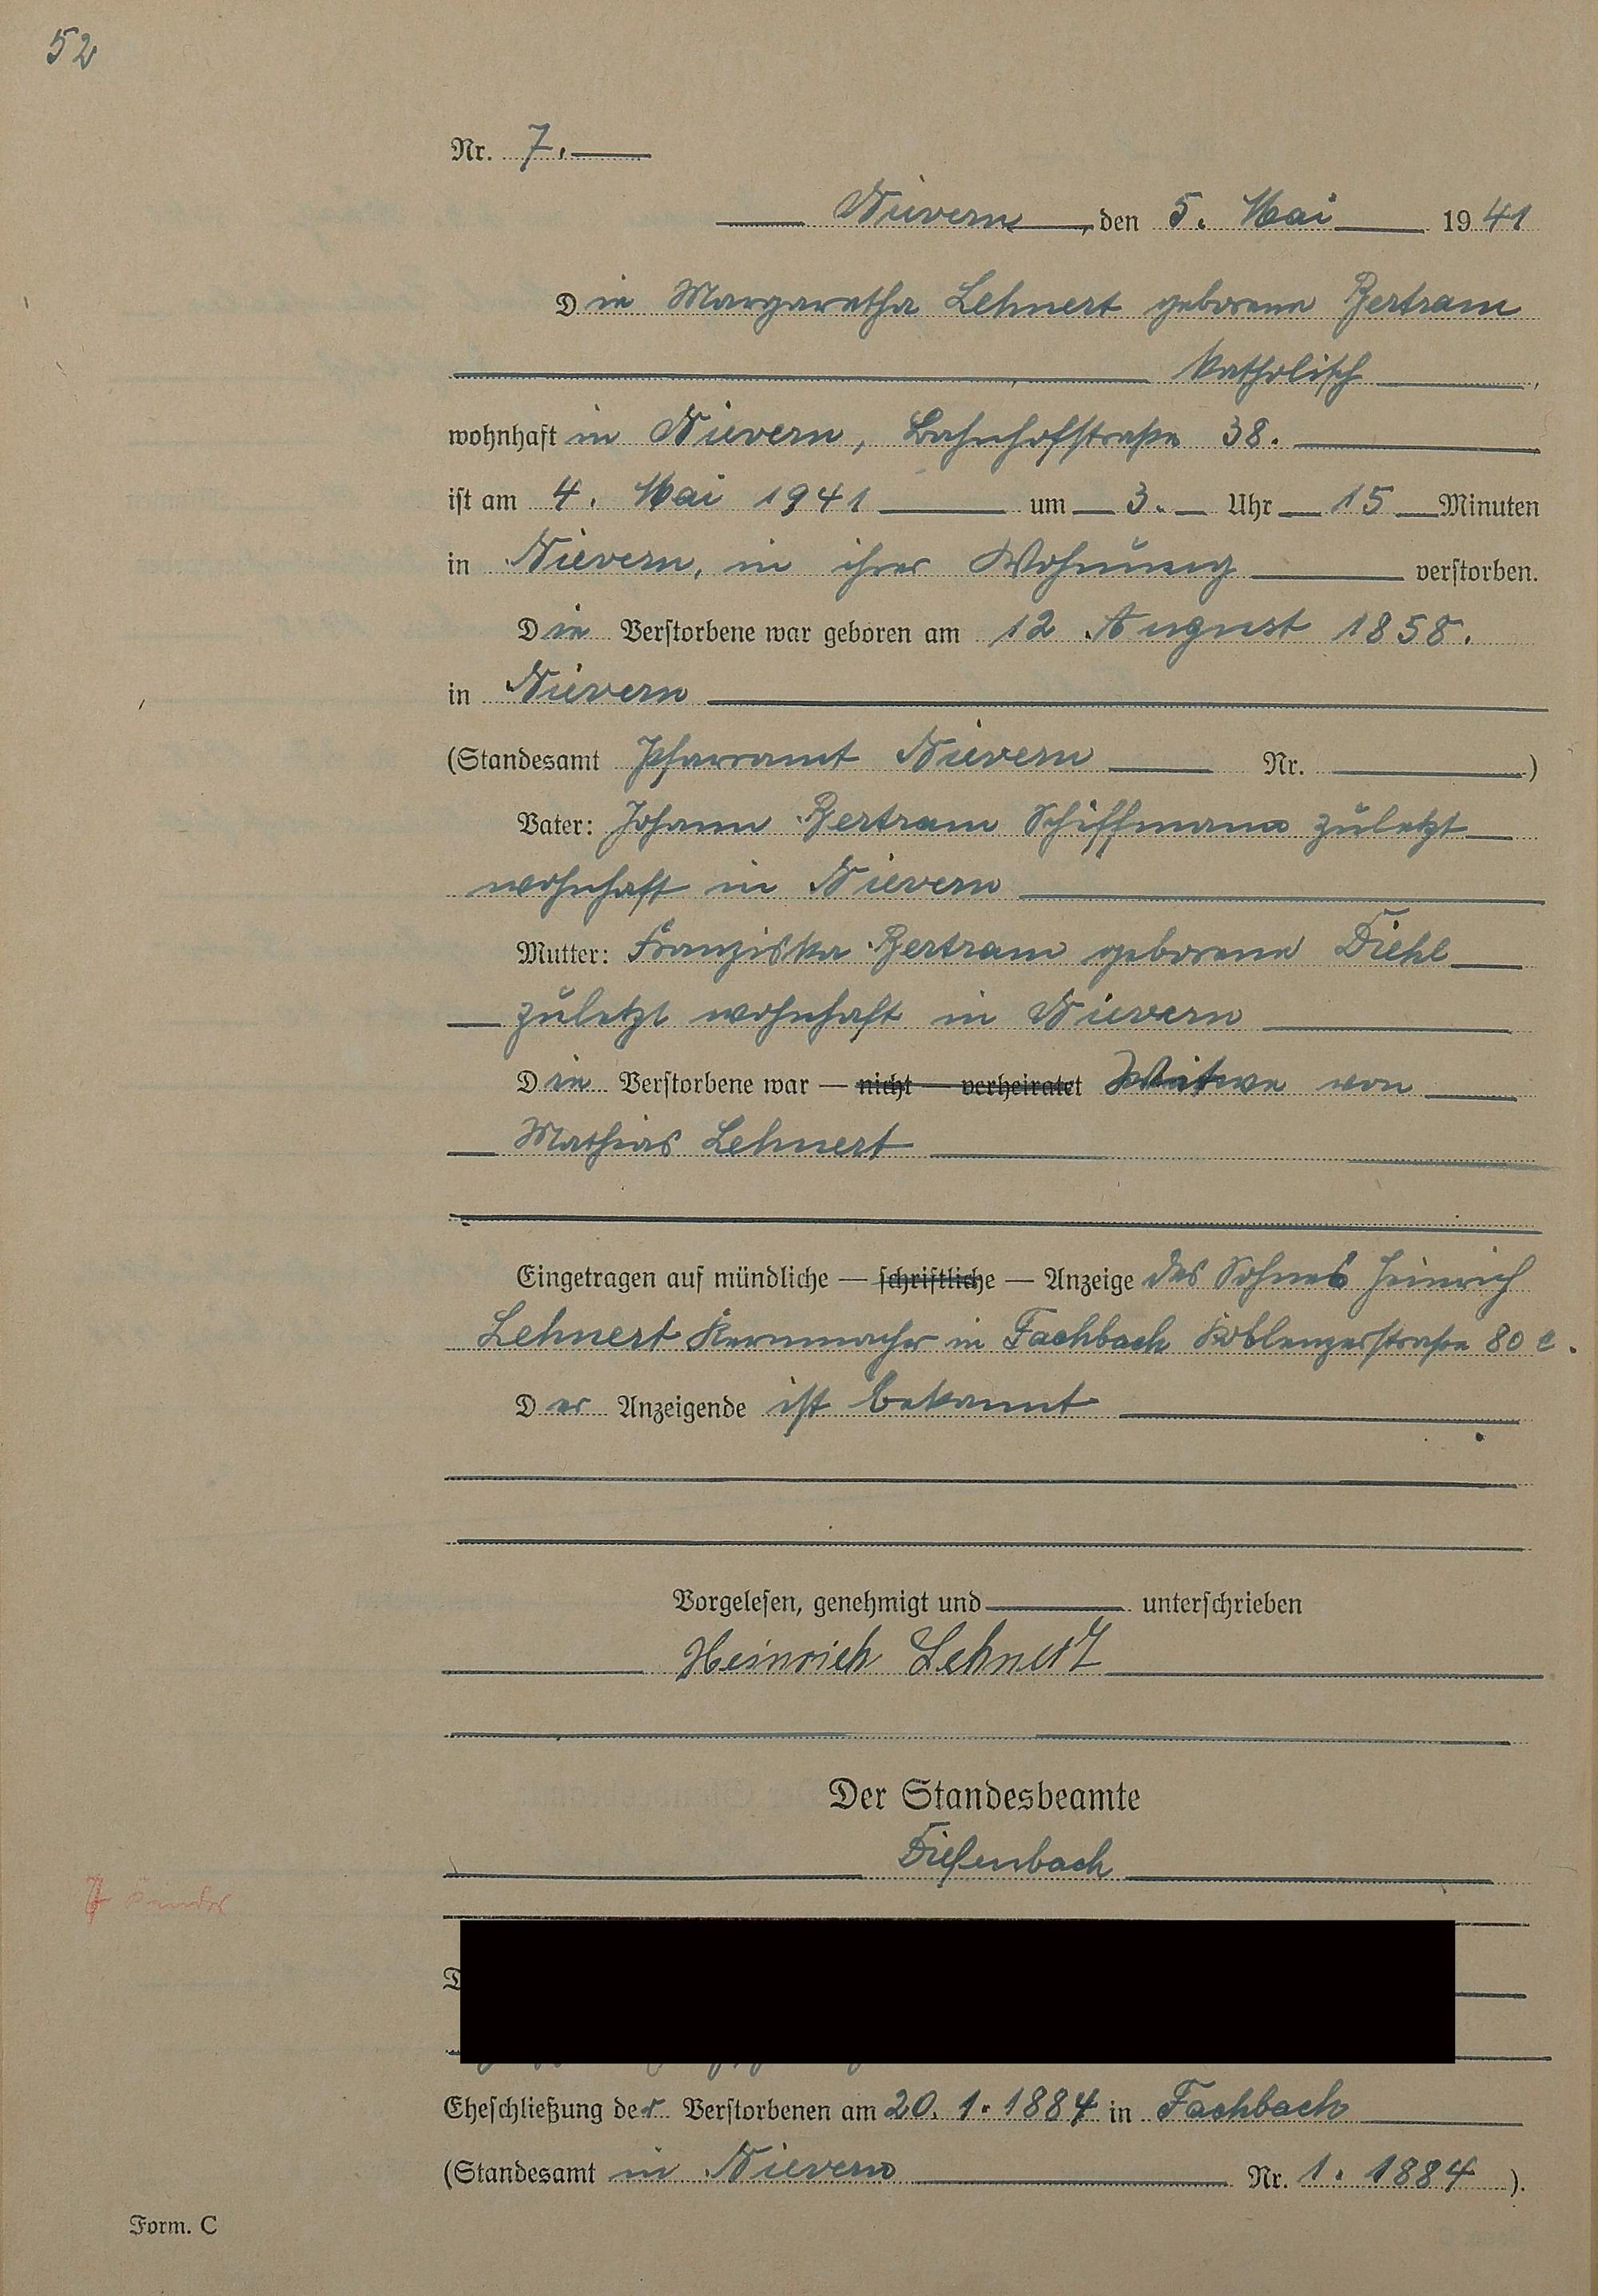 52
Nr. 7.
Nievern, den 5. Mai 1941
Die Margaretha Lehnert geborene Bertram
katholisch,
wohnhaft in Nievern, Bahnhofstraße 38.
ist am 4. Mai 1941 um 3. Uhr 15 Minuten
in Nievern, in ihrer Wohnung verstorben.
Die Verstorbene war geboren am 12. August 1858.
in Nievern
(Standesamt Pfarramt Nievern Nr. )
Vater: Johann Bertram Schiffmann zuletzt
wohnhaft in Nievern
Mutter: Franziska Bertram geborene Diehl
zuletzt wohnhaft in Nievern
Die Verstorbene war — nicht — verheiratet Witwe von
Mathias Lehnert
Eingetragen auf mündliche — schriftliche — Anzeige des Sohnes Heinrich
Lehnert Kernmacher in Fachbach Koblenzerstraße 80 c.
Der Anzeigende ist bekannt
Vorgelesen, genehmigt und unterschrieben
Heinrich Lehnert
Der Standesbeamte
Diefenbach
Kinder
D
Eheschließung der Verstorbenen am 20. 1. 1884 in Fachbach
(Standesamt in Nievern Nr. 1. 1884).
Form. C